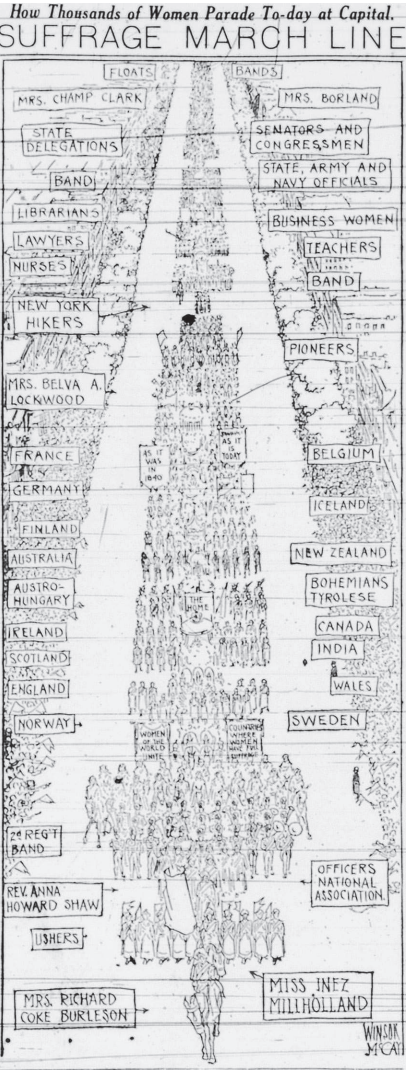 How Thousands of Women Parade To-day at Capital.
SUFFRAGE MARCH LINE
FLOATS
BANDS
MRS. CHAMP CLARK
MRS. BORLAND
STATE
DELEGATIONS
SENATORS AND
CONGRESSMEN
BAND
STATE, ARMY AND
NAVY OFFICIALS
LIBRARIANS
BUSINESS WOMEN
LAWYERS
TEACHERS
NURSES
BAND
NEW YORK
HIKERS
PIONEERS
MRS. BELVA A.
LOCKWOOD
AS IT
WAS
IN
1840
AS IT
TODAY
FRANCE
BELGIUM
GERMANY
ICELAND
FINLAND
AUSTRALIA
NEW ZEALAND
AUSTRO-
HUNGARY
BOHEMIANS
TYROLESE
THE
HOME
IRELAND
CANADA
SCOTLAND
INDIA
ENGLAND
WALES
NORWAY
SWEDEN
WOMEN
OF THE
WORLD
UNITE
COUNTRIES
WHERE
WOMEN
HAVE FULL
SUFFRAGE
2d REG'T
BAND
OFFICERS
NATIONAL
ASSOCIATION.
REV. ANNA
HOWARD SHAW
USHERS
MISS INEZ
MILLHOLLAND
MRS. RICHARD
COKE BURLESON
WINSOR
McCAY